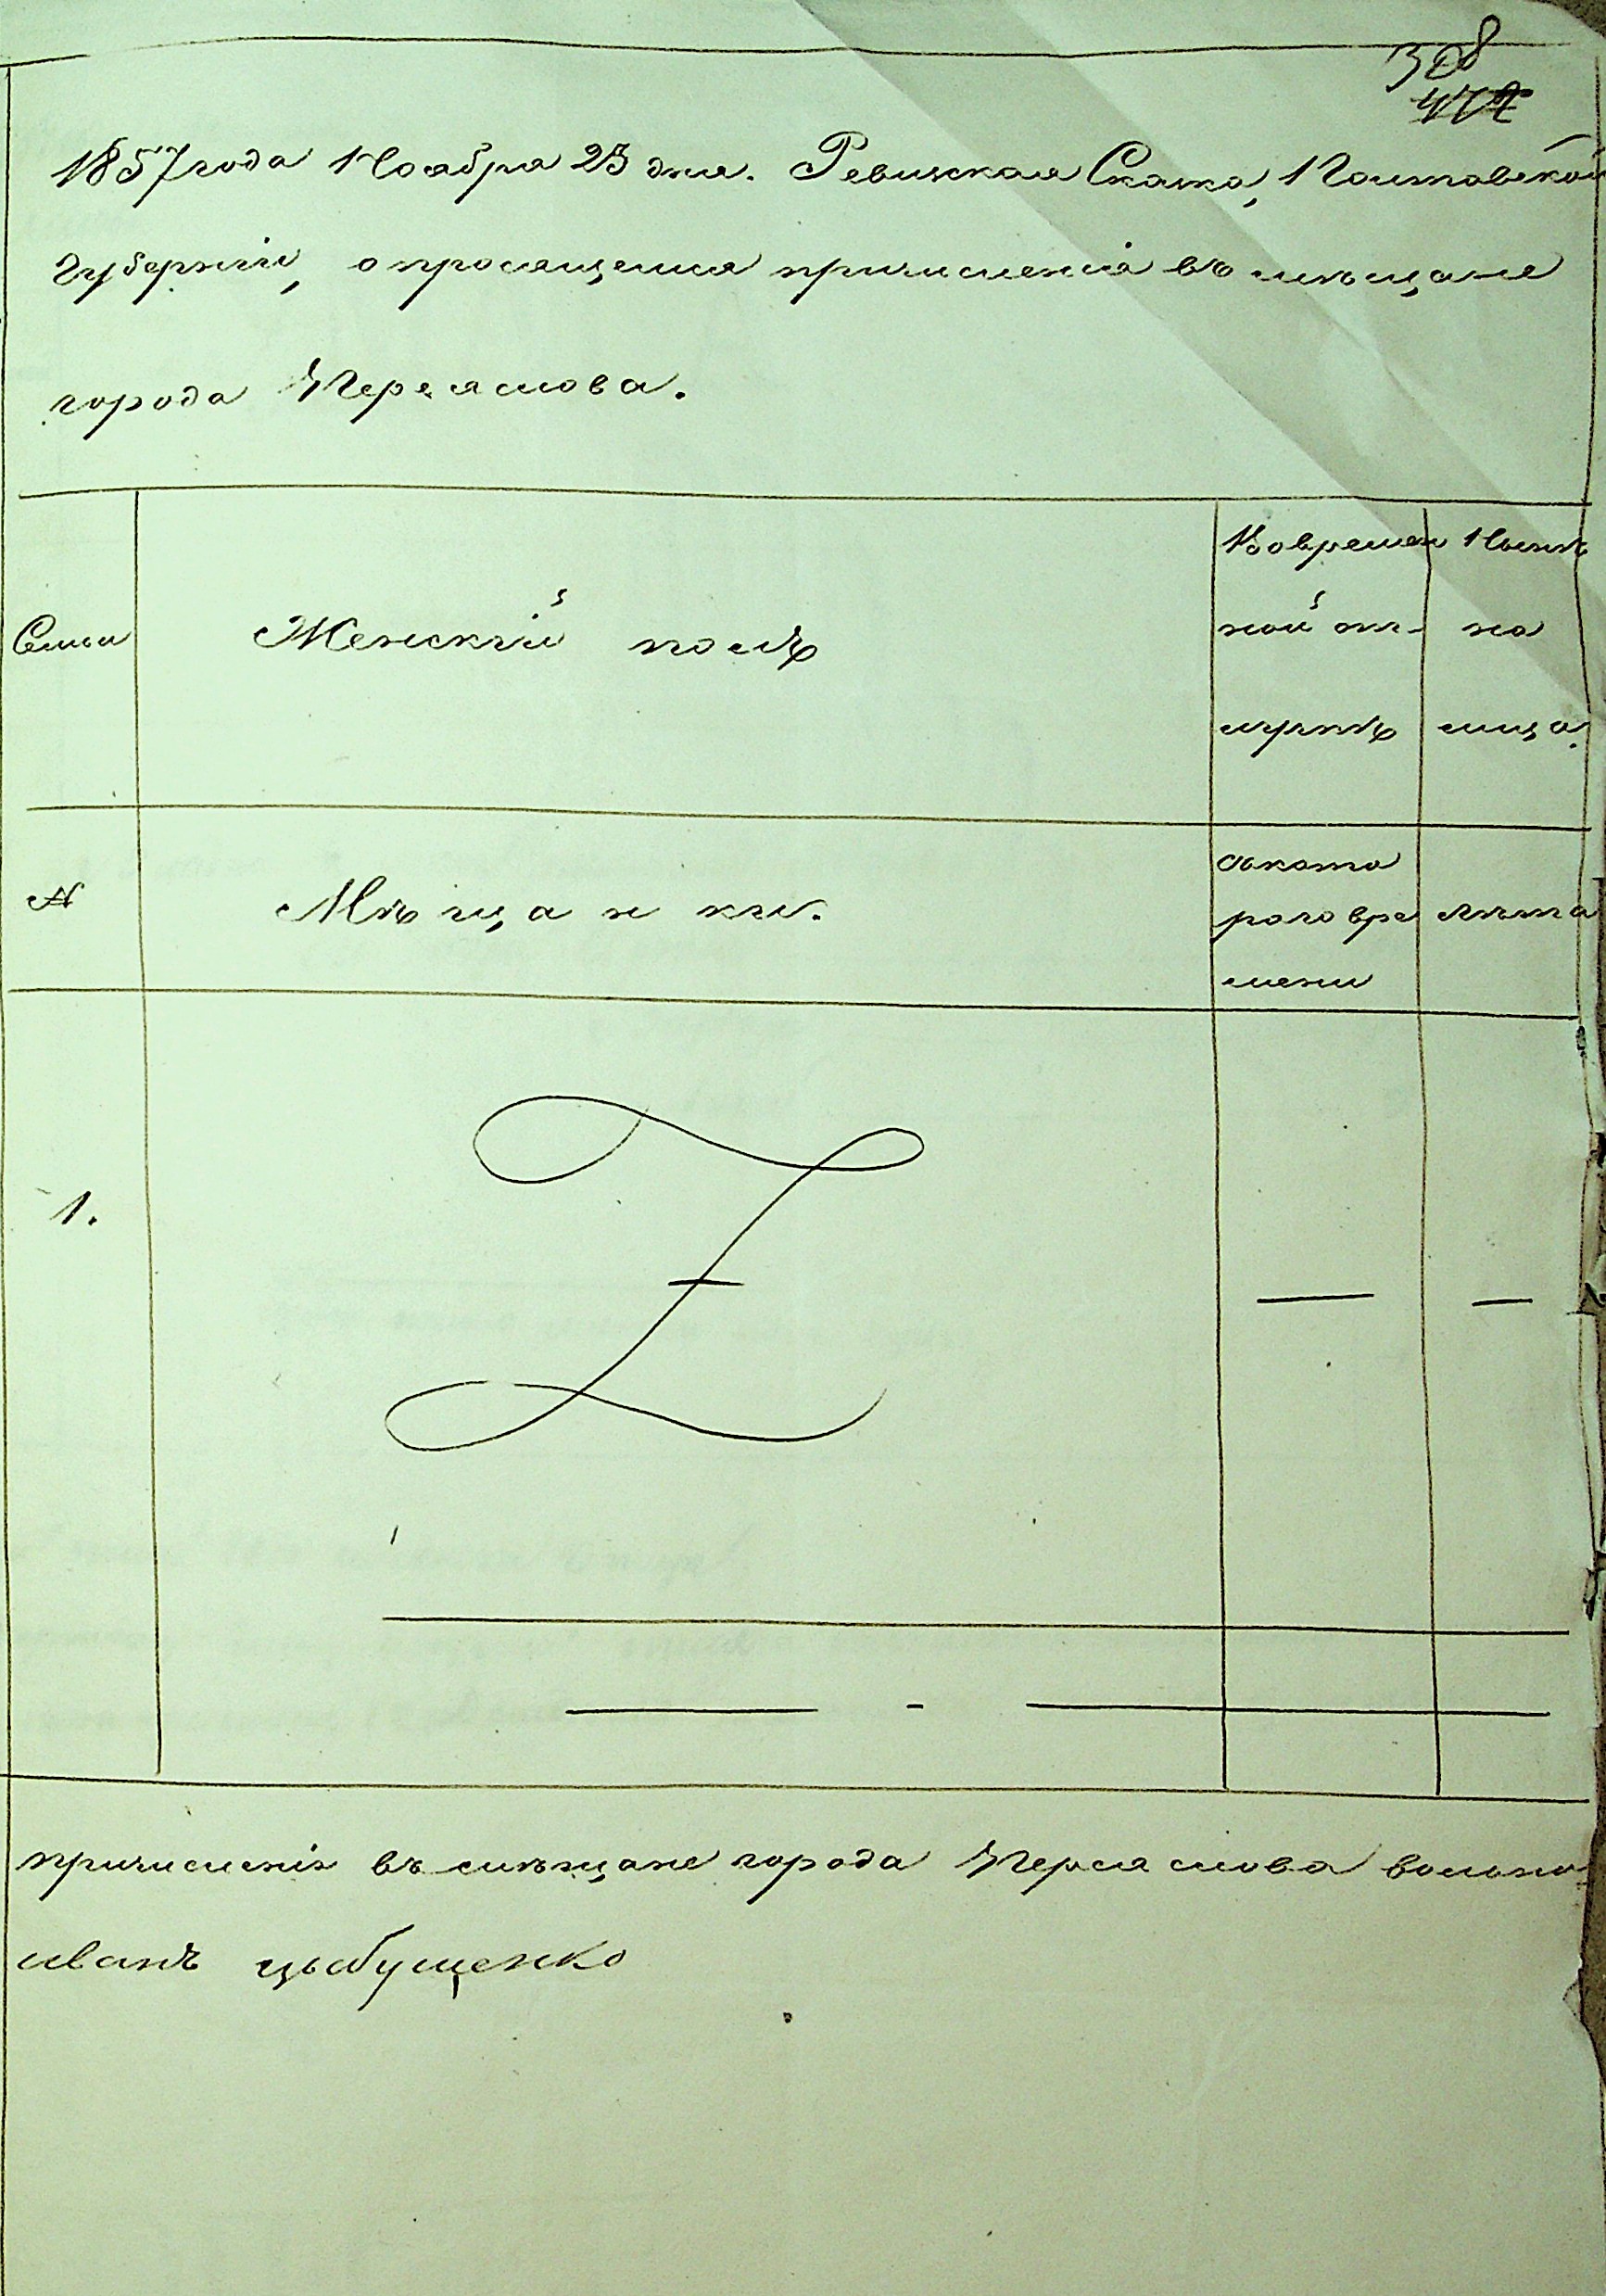 308
472
1857 года Ноября 23 дня. Ревизская Сказка, Полтавской
Губерніи, о просящемся причисленія въ мѣщане
города Переяслова.
Семьи
Женскій полъ
Во времен
ной от-
лучкѣ
Нынѣ
на
лицо.
№
Мѣщанки.
Съ кото
раго вре
мени
Лѣта
1.
причисленія въ мѣщане города Переяслова вольно
иванъ цыбущенко